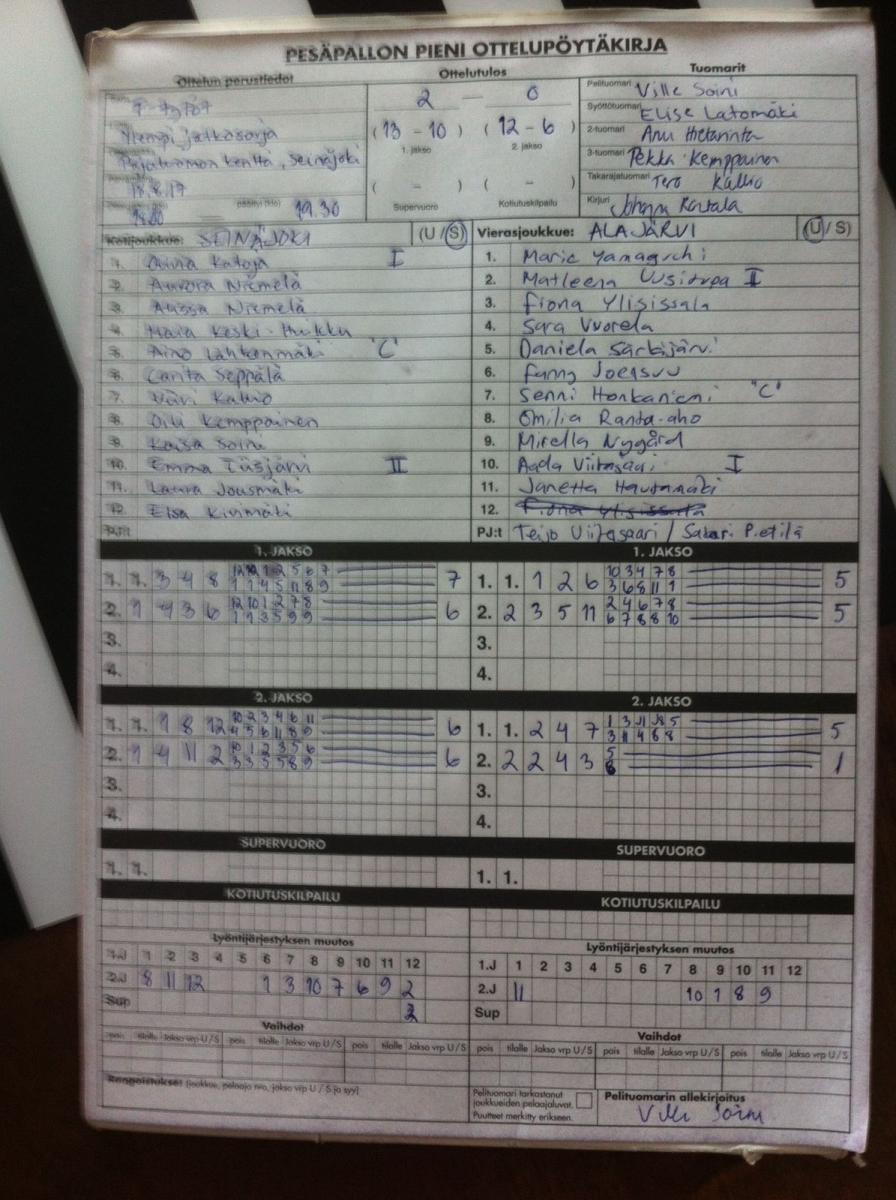 PESÄPALLON PIENI OTTELUPÖYTÄKIRJA
Ottelun perustiedot Ottelutulos Tuomarit
2 — 0
(13 - 10) (12 - 6)
1. jakso 2. jakso
( - ) ( - )
Supervuoro Kotiutuskilpailu
Ylempi jatkosarja
kenttä, Seinäjoki
19.30
Pelituomari Ville Soini
Syöttötuomari Elise Latomäki
2-tuomari Anu
3-tuomari Pekka Kemppainen
Takarajatuomari Tero Kallio
Kirjuri Johanna Rantala
Kotijoukkue: SEINÄJOKI (U/S)
I
2. Aurora Niemelä
3. Alissa Niemelä
4. Maia Keski-
5. Aino "C"
6. Carita Seppälä
7. Kallio
8. Kemppainen
9. Kaisa Soini
10. Emma II
11. Laura Jousmäki
12. Elsa Kivimäki
PJ:t
Vierasjoukkue: ALAJÄRVI (U/S)
1. Marie Yamaguchi
2. Matleena Uusitupa II
3. Fiona Ylisissala
4. Sara Vuorela
5. Daniela Särkijärvi
6. Fanny Joensuu
7. Senni Honkaniemi "C"
8. Omilia Ranta-aho
9. Mirella Nygård
10. Aada Viitasaari I
11. Janetta Hautamäki
12. Fiona Ylisissala
PJ:t Teijo Viitasaari / Sakari Pietilä
1. JAKSO 1. JAKSO
1. 1. 3 4 8 12 10 1 2 5 6 7 7
1 1 4 5 11 8 9
2. 1 4 3 6 12 10 1 2 7 8 6
1 1 3 5 9 9
3.
4.
1. 1. 1 2 6 10 3 4 7 8 5
3 6 8 11 1
2. 2 3 5 11 2 4 6 7 8 5
6 7 8 8 10
3.
4.
2. JAKSO 2. JAKSO
1. 1. 1 8 12 10 2 3 4 6 11 6
4 5 6 11 8 9
2. 1 4 11 2 10 1 2 3 5 6 6
3 3 5 5 8 9
3.
4.
1. 1. 2 4 7 1 3 11 8 5 5
3 11 4 6 8
2. 2 2 4 3 5 1
8
3.
4.
SUPERVUORO SUPERVUORO
1. 1. 1. 1.
KOTIUTUSKILPAILU KOTIUTUSKILPAILU
Lyöntijärjestyksen muutos Lyöntijärjestyksen muutos
1.J 1 2 3 4 5 6 7 8 9 10 11 12
2.J 8 11 12 1 3 10 7 6 9 2
Sup 2
1.J 1 2 3 4 5 6 7 8 9 10 11 12
2.J 11 10 7 8 9
Sup
Vaihdot Vaihdot
pois tilalle Jakso vrp U/S pois tilalle Jakso vrp U/S pois tilalle Jakso vrp U/S
pois tilalle Jakso vrp U/S pois tilalle Jakso vrp U/S pois tilalle Jakso vrp U/S
Rangaistukset (joukkue, pelaaja nro, jakso vrp U/S ja syy)
Pelituomari tarkastanut
joukkueiden pelaajaluvat.
Puutteet merkitty erikseen.
Pelituomarin allekirjoitus
Ville Soini